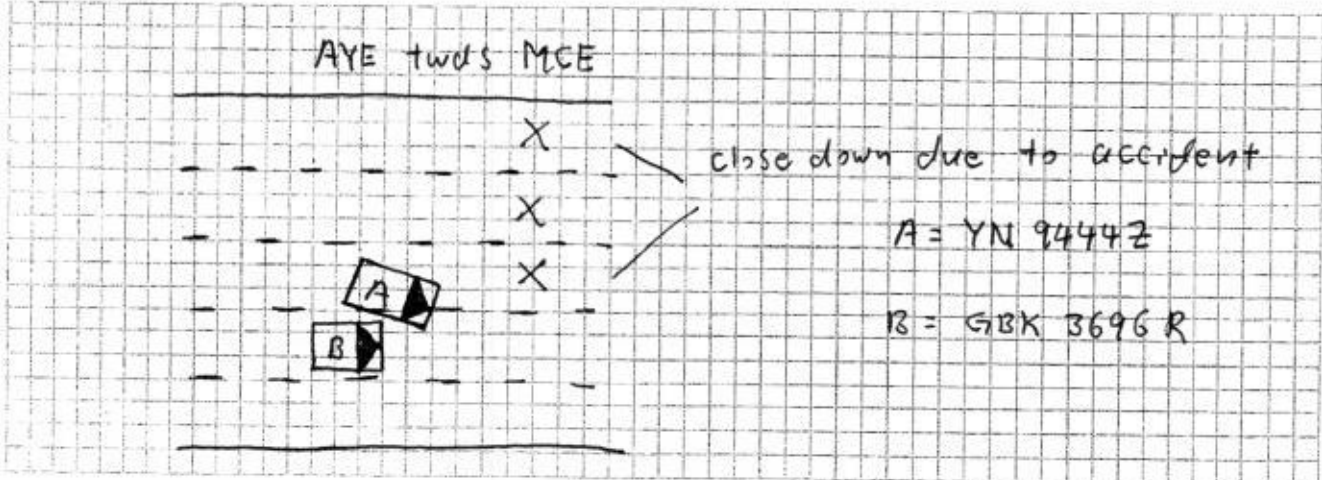 AYE twds MCE
X
close down due to accident
X
A = YN 9444Z
X
A
B = GBK 3696 R
B